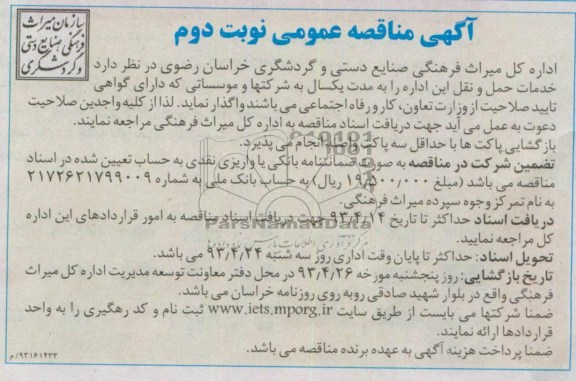 سازمان میراث
فرهنگی صنایع دستی
و گردشگری
آگهی مناقصه عمومی نوبت دوم
اداره کل میراث فرهنگی صنایع دستی و گردشگری خراسان رضوی در نظر دارد
خدمات حمل و نقل این اداره را به مدت یکسال به شرکتها و موسساتی که دارای گواهی
تایید صلاحیت از وزارت تعاون، کار و رفاه اجتماعی می باشند واگذار نماید. لذا از کلیه واجدین صلاحیت
دعوت به عمل می آید جهت دریافت اسناد مناقصه به اداره کل میراث فرهنگی مراجعه نمایند.
بازگشایی پاکت ها با حداقل سه پاکت واصله انجام می پذیرد.
تضمین شرکت در مناقصه به صورت ضمانتنامه بانکی یا واریزی نقدی به حساب تعیین شده در اسناد
مناقصه می باشد (مبلغ ۱۹/۵۰۰/۰۰۰ ریال) به حساب بانک ملی به شماره ۲۱۷۲۶۲۱۷۹۹۰۰۹
به نام تمرکز وجوه سپرده میراث فرهنگی.
دریافت اسناد حداکثر تا تاریخ ۹۳/۴/۱۴ جهت دریافت اسناد مناقصه به امور قراردادهای این اداره
کل مراجعه نمایید.
تحویل اسناد: حداکثر تا پایان وقت اداری روز سه شنبه ۹۳/۴/۲۴ می باشد.
تاریخ بازگشایی: روز پنجشنبه مورخه ۹۳/۴/۲۶ در محل دفتر معاونت توسعه مدیریت اداره کل میراث
فرهنگی واقع در بلوار شهید صادقی روبه روی روزنامه خراسان می باشد.
ضمنا شرکتها می بایست از طریق سایت www.iets.mporg.ir ثبت نام و کد رهگیری را به واحد
قراردادها ارائه نمایند.
ضمنا پرداخت هزینه آگهی به عهده برنده مناقصه می باشد.
۹۳۱۶۱۴۳۳/م
ParsNamadData